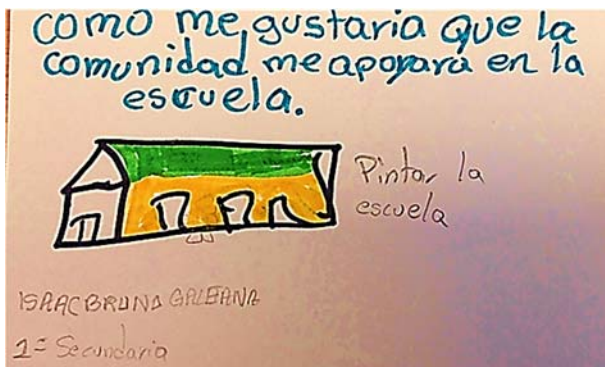 como me gustaria que la
comunidad me apoyara en la
escuela.
Pintar la
escuela
ISAAC BRUNO GALEANA
1= Secundaria